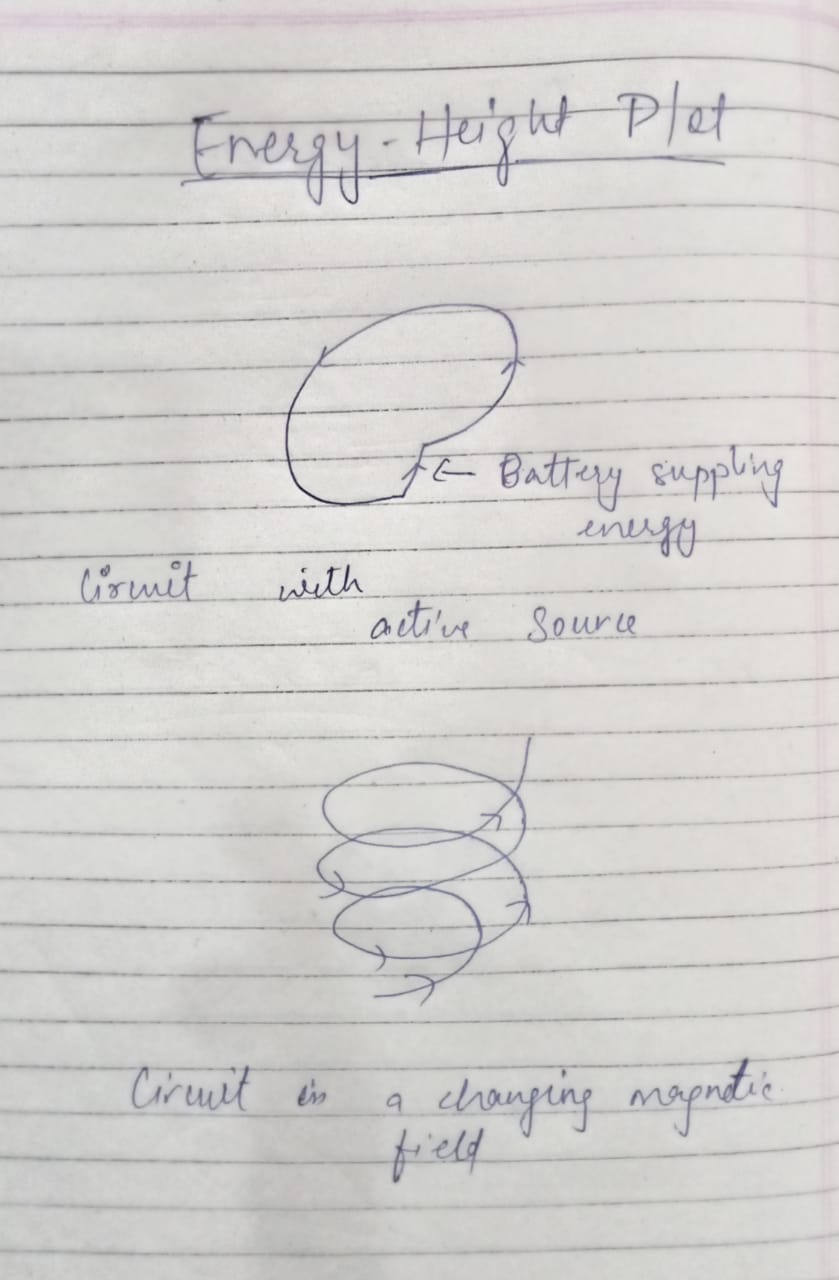 Energy-Height Plot
← Battery suppling
energy
Circuit with
active Source
Circuit in a changing magnetic
field